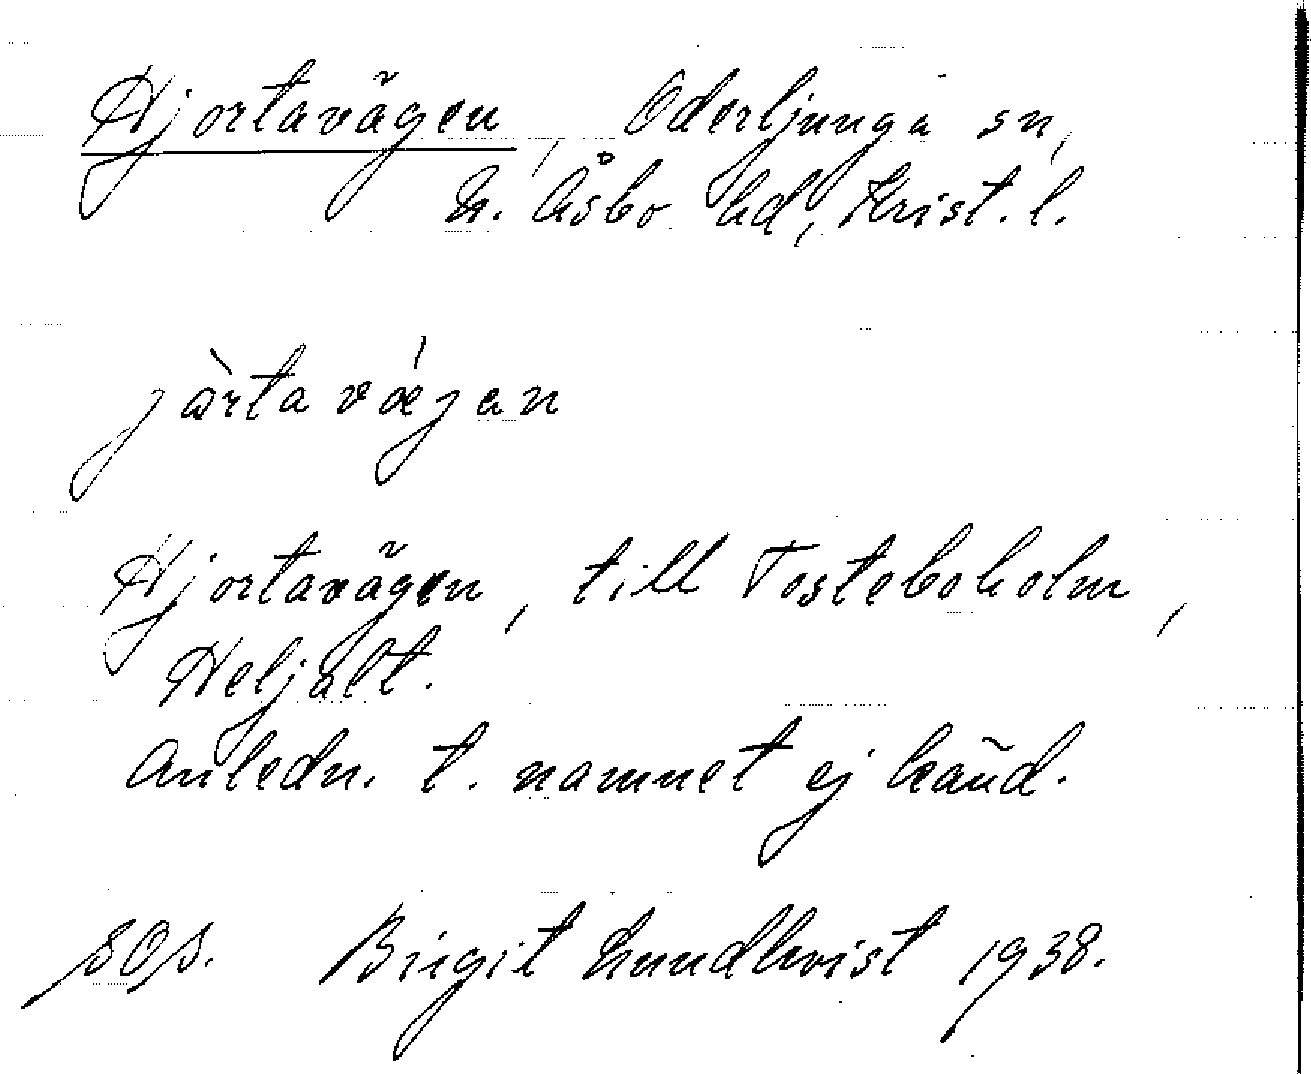 Hjortavägen, Oderljunga sn,
N. Åsbo hd, Krist. l.
jàrta vǽjen
Hjortavägen, till Tosteboholm,
Heljalt.
Anledn. t. namnet ej känd.
sOs. Birgit Lundkvist 1938.